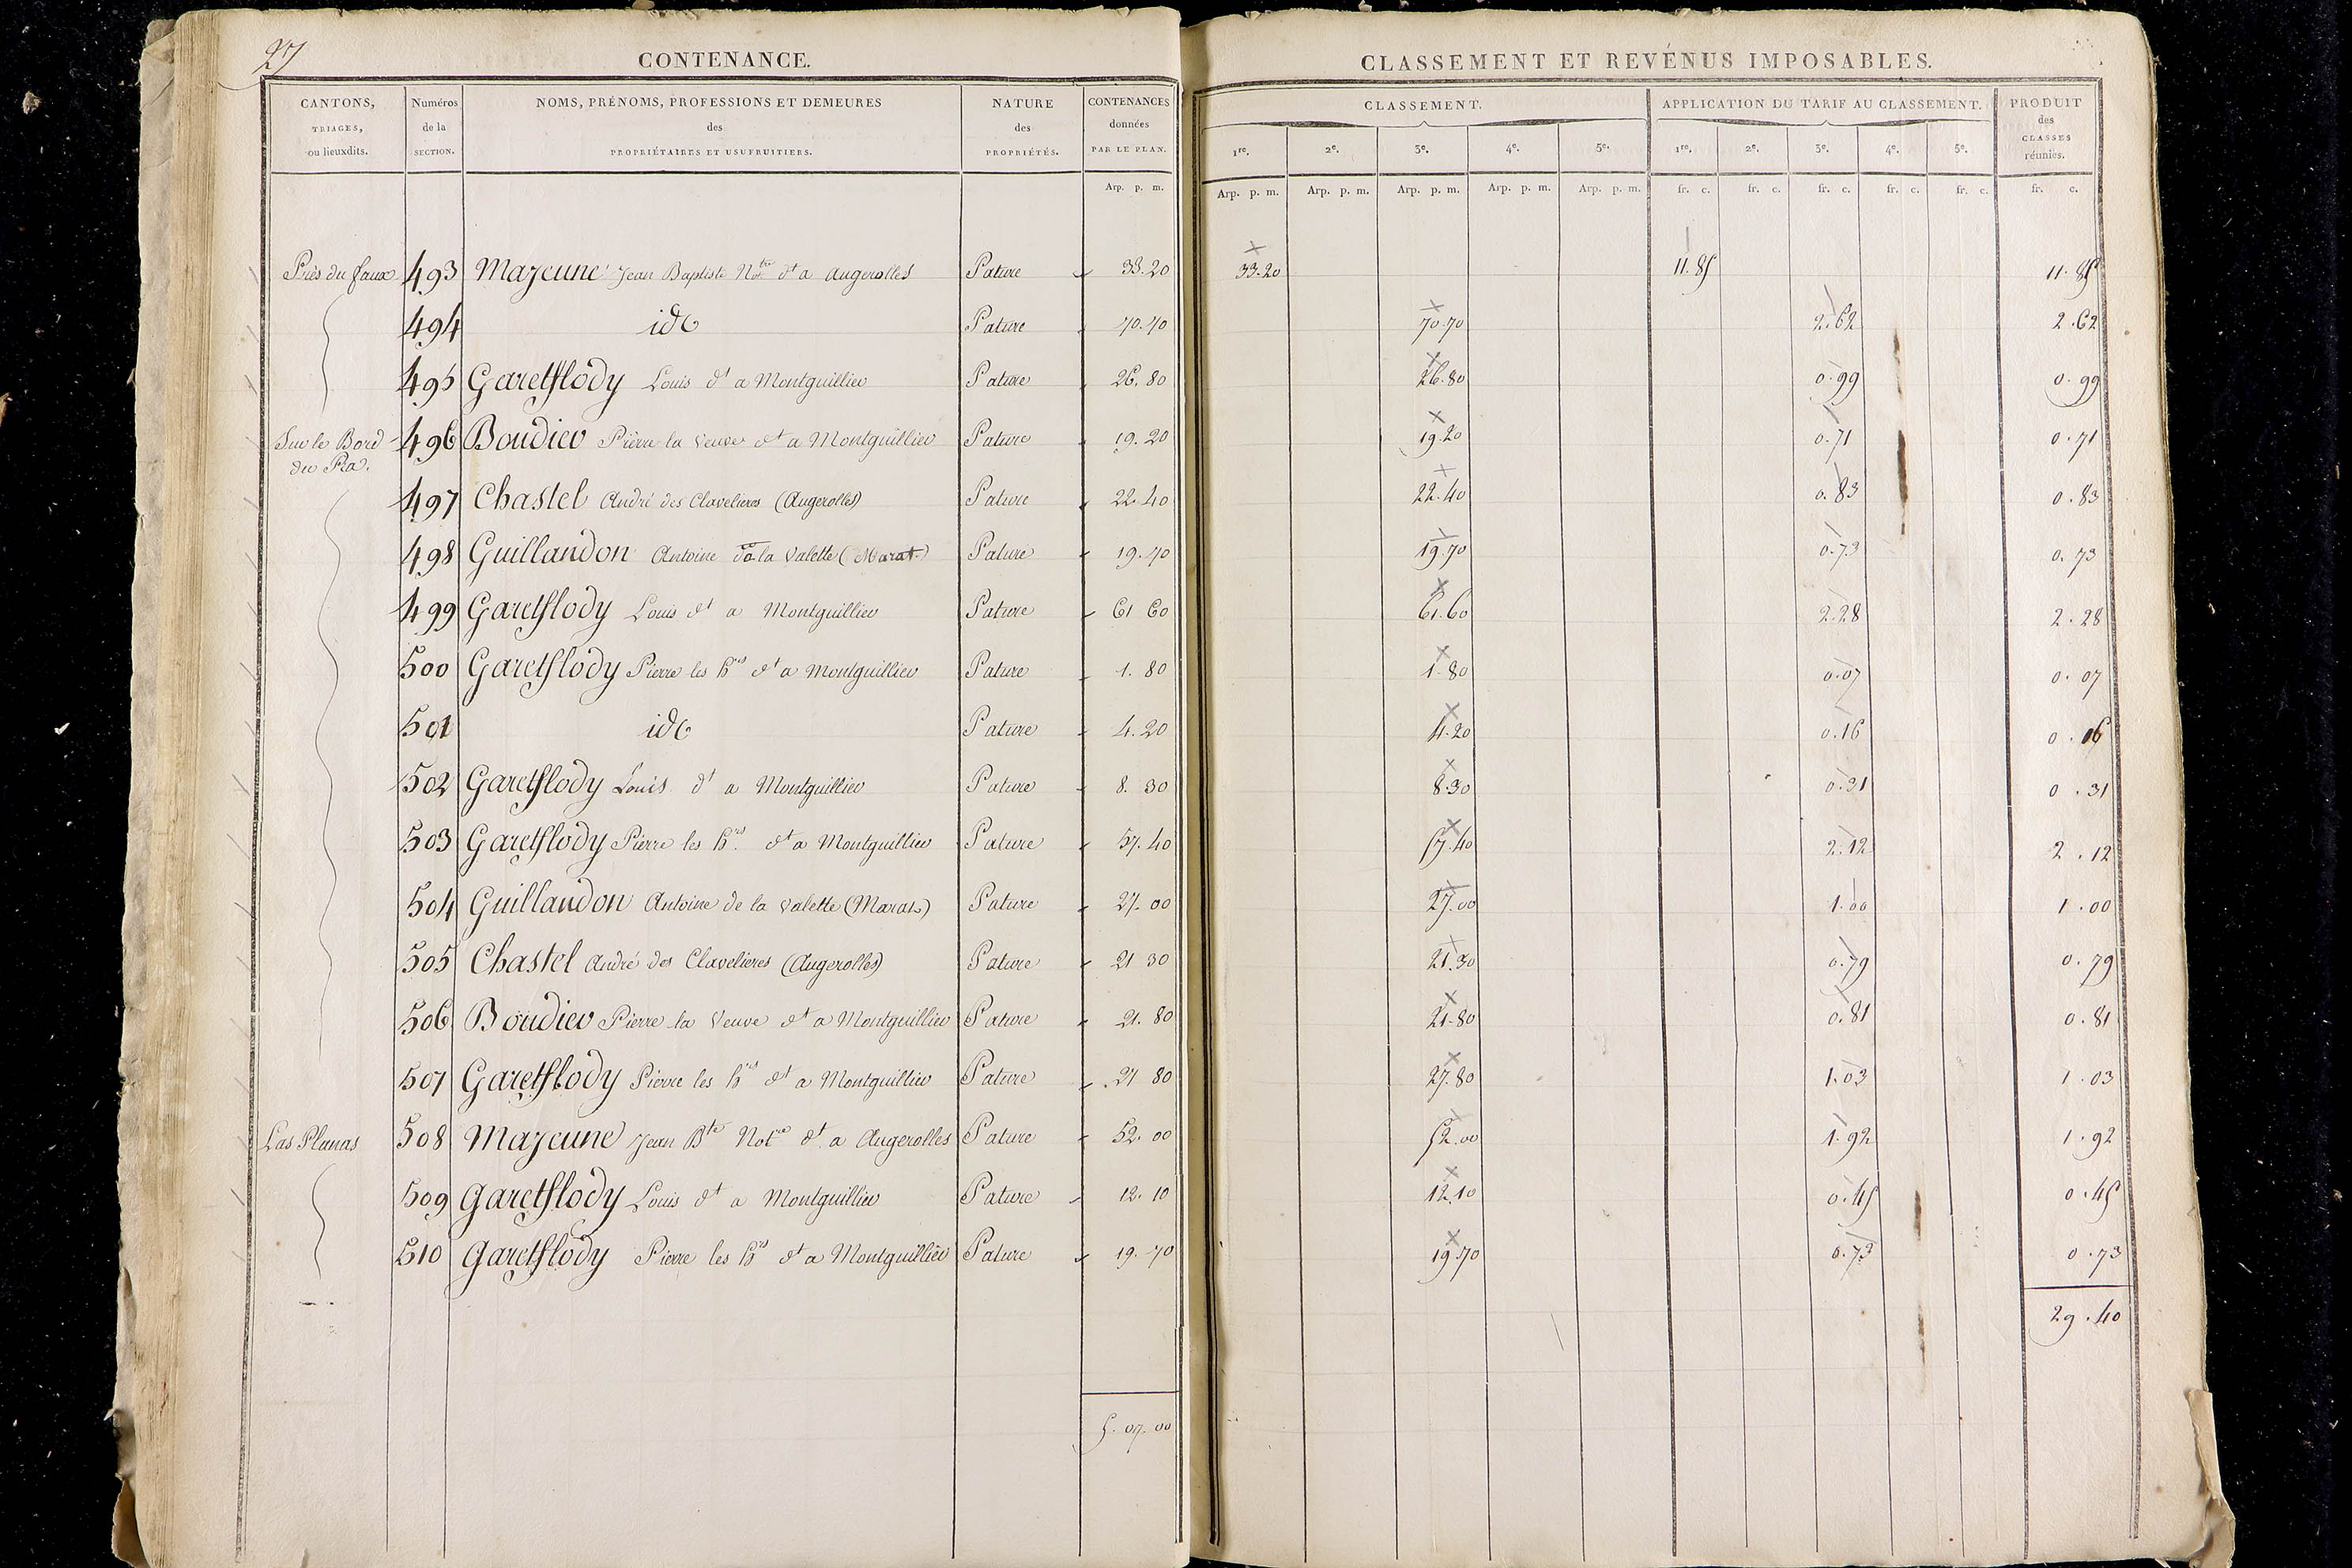 27
CONTENANCE.
CANTONS, TRIAGES, ou lieuxdits.
Numéros de la SECTION.
NOMS, PRÉNOMS, PROFESSIONS ET DEMEURES des PROPRIÉTAIRES ET USUFRUITIERS.
NATURE des PROPRIÉTÉS.
CONTENANCES données PAR LE PLAN.
Arp. p. m.
CLASSEMENT ET REVÉNUS IMPOSABLES.
CLASSEMENT.
APPLICATION DU TARIF AU CLASSEMENT.
PRODUIT des CLASSES réunies.
1re. 2e. 3e. 4e. 5e. 1re. 2e. 3e. 4e. 5e.
Arp. p. m. Arp. p. m. Arp. p. m. Arp. p. m. Arp. p. m. fr. c. fr. c. fr. c. fr. c. fr. c. fr. c.
493 Mazeune Jean Baptiste Not.re dt a Augerolles Pature 33.20 33.20 11.85 11.85
494 id Pature 70.70 70.70 2.62 2.62
495 Garetflody Louis dt a Montguillier Pature 26.80 26.80 0.99 0.99
Sur le Bord du Pra. 496 Boudier Pierre la Veuve dt a Montguillier Pature 19.20 19.20 0.71 0.71
497 Chastel André des Clavelieres (Augerolles) Pature 22.40 22.40 0.83 0.83
498 Guillandon Antoine de la Valette (Marat) Pature 19.70 19.70 0.73 0.73
499 Garetflody Louis dt a Montguillier Pature 61 60 61.60 2.28 2.28
500 Garetflody Pierre les h.rs dt a Montguillier Pature 1.80 1.80 0.07 0.07
501 id Pature 4.20 4.20 0.16 0.16
502 Garetflody Louis dt a Montguillier Pature 8.30 8.30 0.31 0.31
503 Garetflody Pierre les h.rs dt a Montguillier Pature 57.40 57.40 2.12 2.12
504 Guillandon Antoine de la Valette (Marat) Pature 27.00 27.00 1.00 1.00
505 Chastel André des Clavelieres (Augerolles) Pature 21 30 21.30 0.79 0.79
506 Boudier Pierre la Veuve dt a Montguillier Pature 21.80 21.80 0.81 0.81
507 Garetflody Pierre les h.rs dt a Montguillier Pature 27 80 27.80 1.03 1.03
Las Planas 508 Mazeune Jean Bte Not.re dt a Augerolles Pature 52.00 52.00 1.92 1.92
509 Garetflody Louis dt a Montguillier Pature 12.10 12.10 0.45 0.45
510 Garetflody Pierre les h.rs dt a Montguillier Pature 19.70 19.70 0.73 0.73
29.40
5.07.00